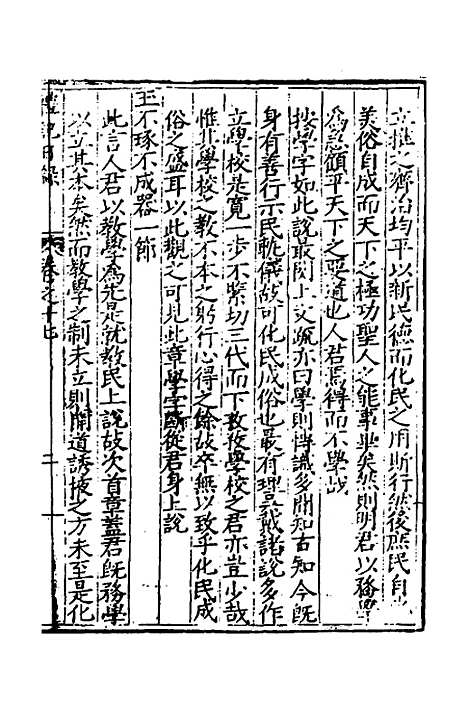 立推之齊治均平以新民德而化民之用斯行然後庶民自
美俗自成而天下之極功聖人之能事畢矣然則明君以務學
為急顧乎天下之要道也人君焉得而不學哉
按學字如此說最関上文疏亦曰學則博識多聞知古知今既
身有善行示民軌儀故可化民成俗也最有理於戴諸說多作
立學校是寬一步不緊切三代而下孜孜學校之君亦豈少哉
惟其學校之教不本之躬行心得之餘故卒無以致乎化民成
俗之盛耳以此觀之可見此章學字斷從君身上說
玉不琢不成器一節
此言人君以教學為先是就教民上說故次首章蓋君既務學
以立其本矣然而教學之制未立則開道誘掖之方未至是化
禮記日錄
卷之十七
二